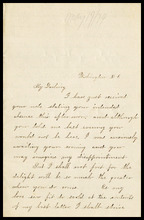 Washington D.C.
My Darling
I have just received
your note stating your intended
absence this afternoon and although
you told me last evening you
would not be here, I was anxiously
awaiting your coming and you
may imagine my disappointment.
But I shall not pine for the
delight will be so much the greater
when you do come. To my
love now fit to send at the
of my last letter I shall